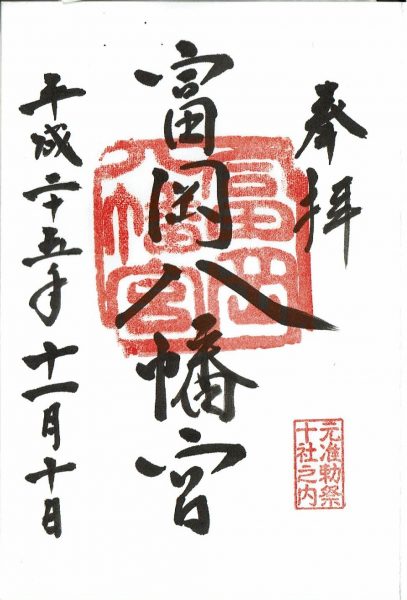 奉拝
元准勅祭
十社之内
富岡八幡宮
富岡
八幡宮
平成二十五年十一月十日